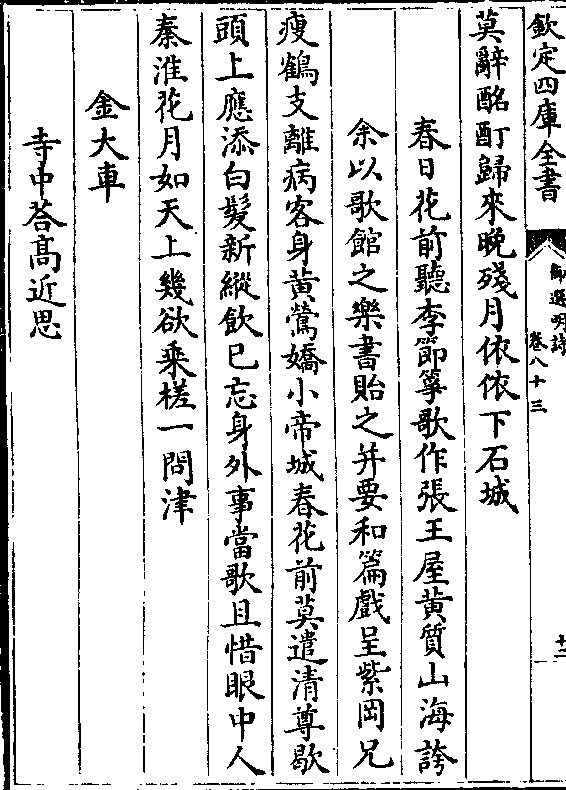 欽定四庫全書
御選明詩
卷八十三
十二
莫辭酩酊歸來晚殘月依依下石城
春日花前聽李節箏歌作張王屋黃質山海誇
余以歌館之樂書貽之并要和篇戲呈紫岡兄
瘦鶴支離病客身黃鶯嬌小帝城春花前莫遣清尊歇
頭上應添白髮新縱飲已忘身外事當歌且惜眼中人
秦淮花月如天上幾欲乘槎一問津
金大車
寺中荅髙近思